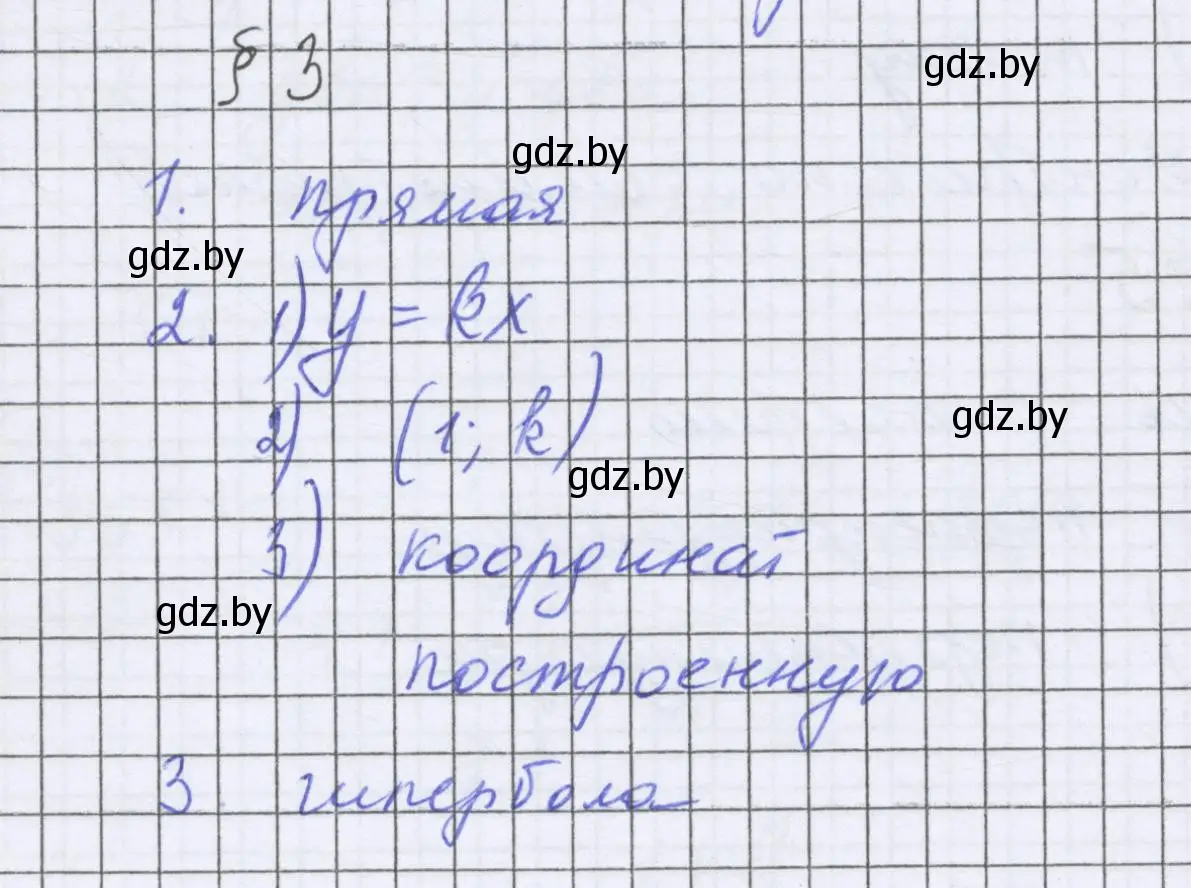 § 3
gdz.by
gdz.by
1. прямая
gdz.by
2. 1) y = kx
2) (1; k)
gdz.by
gdz.by
3) координат
gdz.by
построенную
3. гипербола